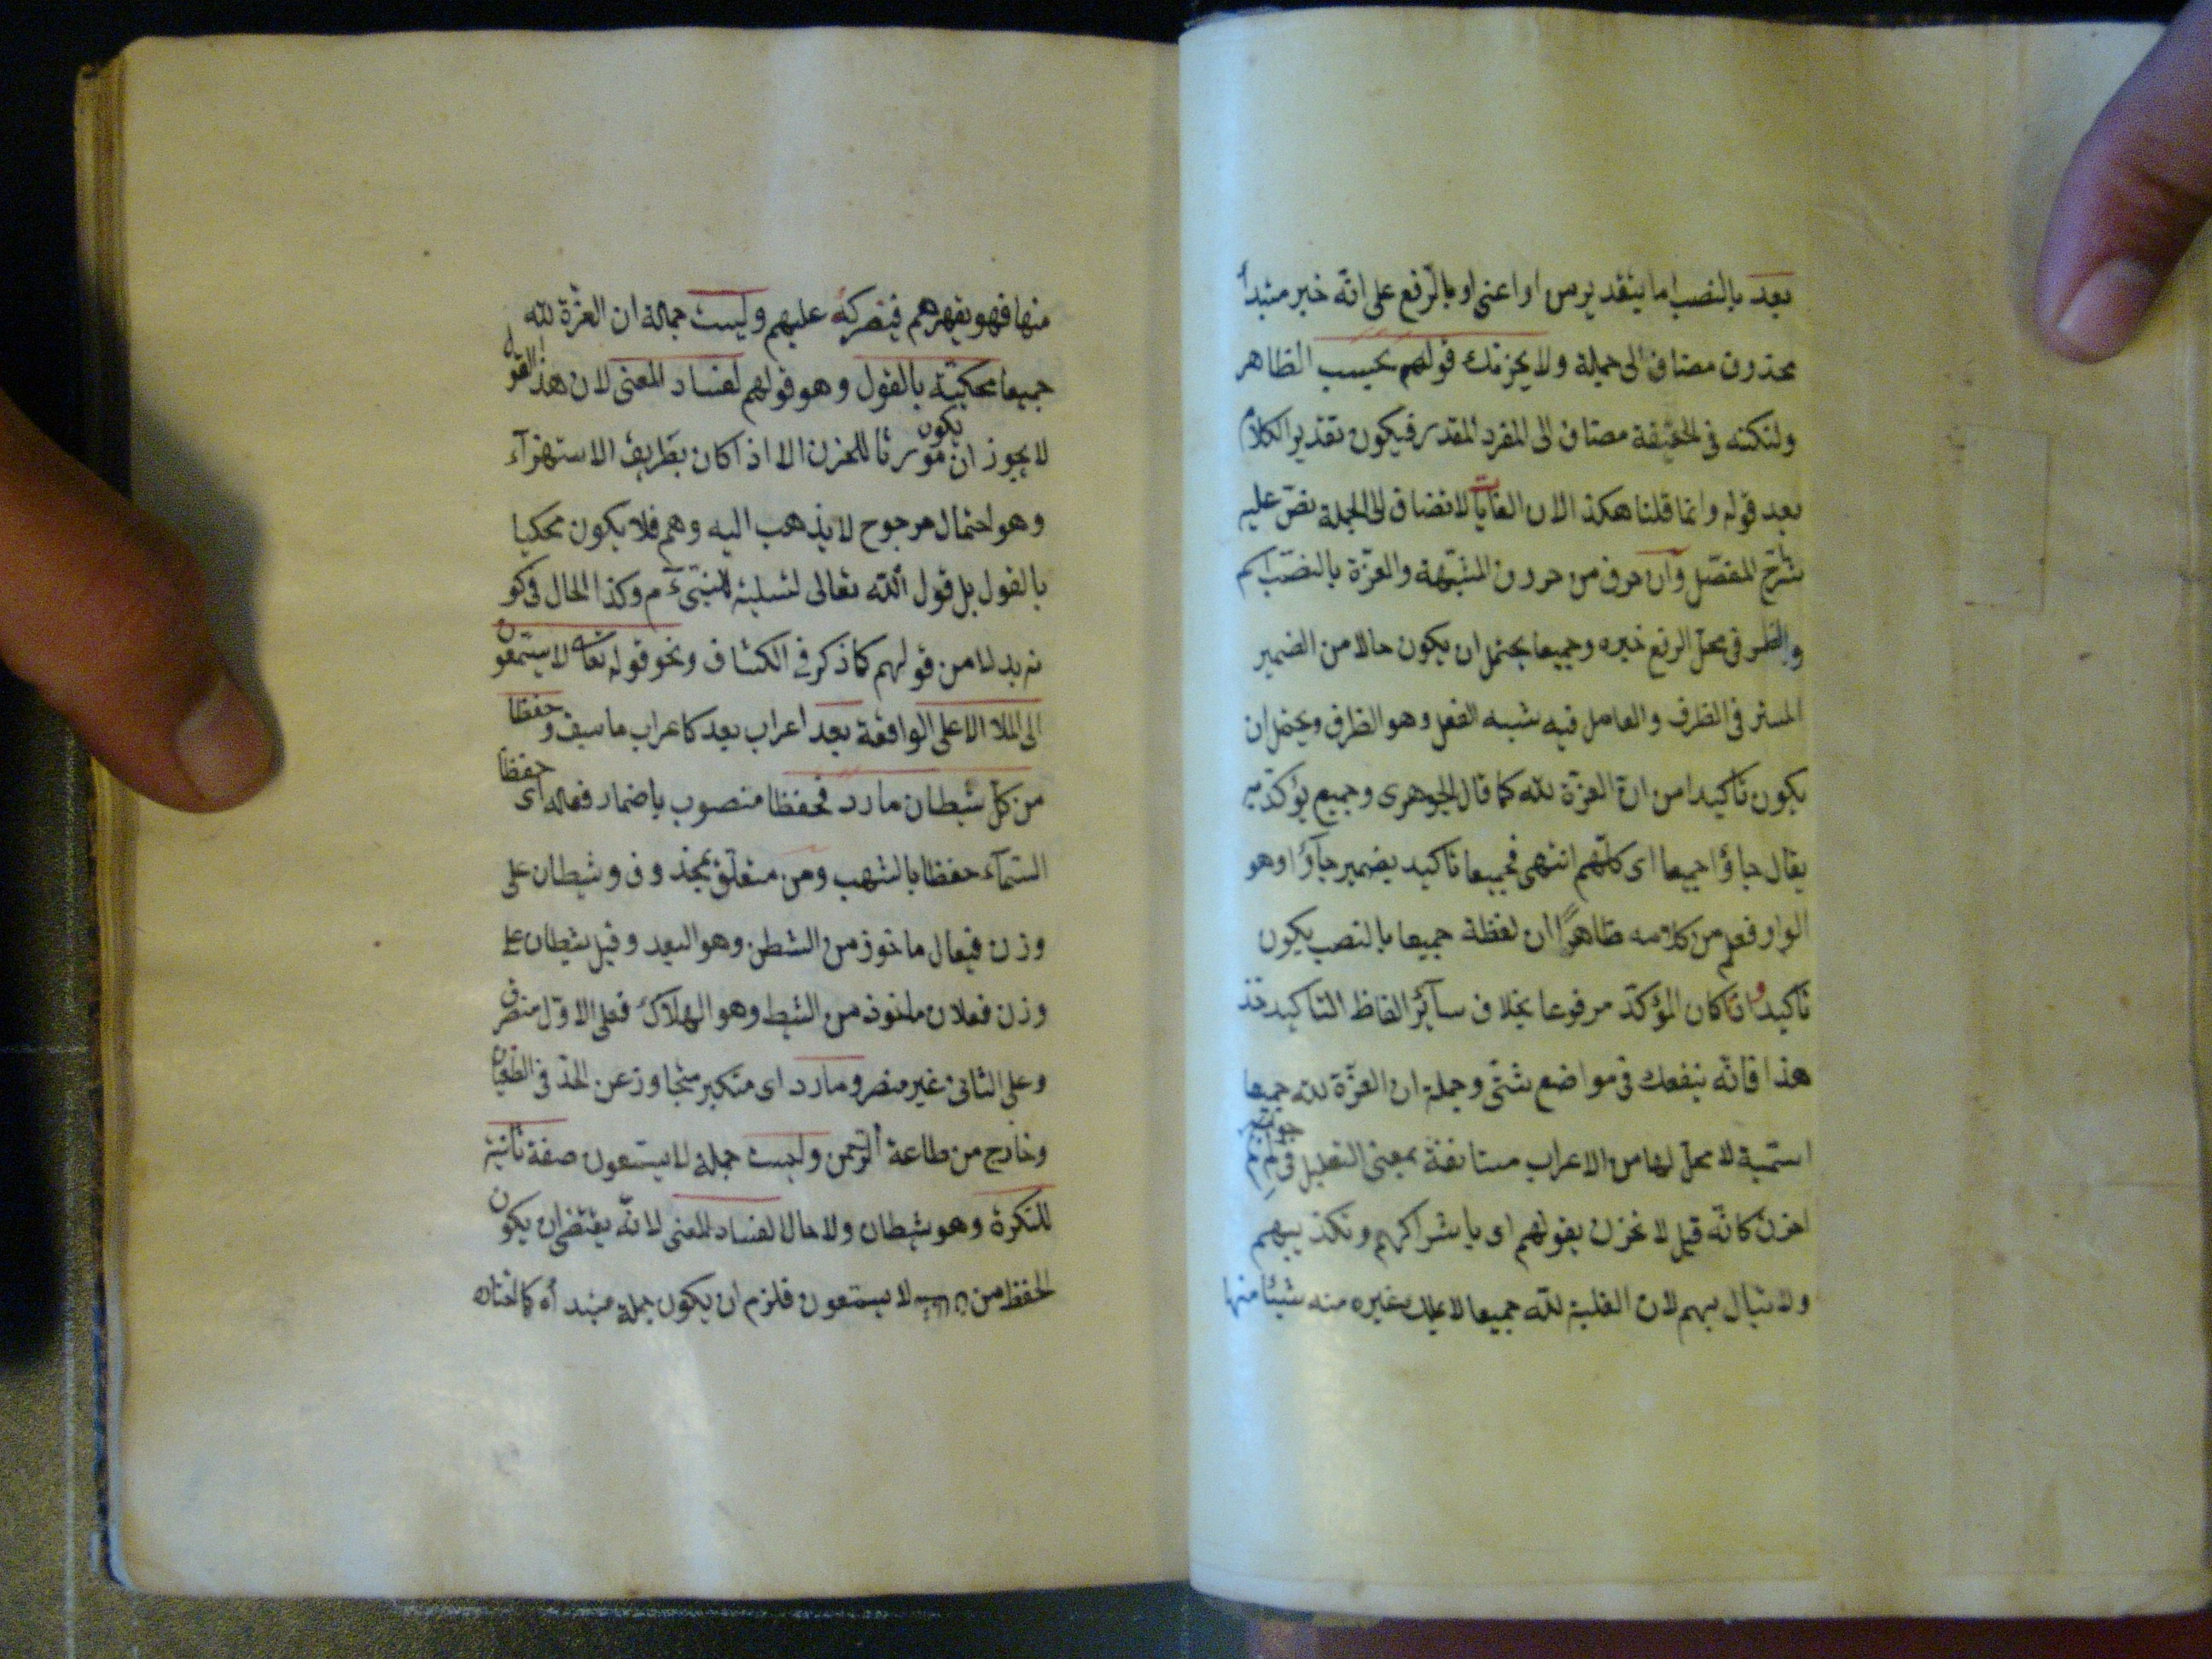 بعد بالنصب اما بتقدير س او اعنى او بالرّفع على انّه خبر مبتدأ
محذوف مضاف الى جملة ولا يحزنك قولهم بحسب الظاهر
ولكنه فى الحقيقة مضاف الى المفرد المقدر فيكون تقدير الكلام
بعد قوله وانما قلنا هكذا لان الغايات لا تضاف الى الجملة نصّ عليه
شارح المفصّل وان حرف من حروف المشبّهة والعزّة بالنصب اسم
والظرف فى محل الرفع خبره وجميعا يحتمل ان يكون حالا من الضمير
المستتر فى الظرف والعامل فيه شبه الفعل وهو الظرف ويحتمل ان
يكون تأكيدا من انّ العزّة لله كما قال الجوهرى وجميع يؤكّد به
يقال جاؤا جميعا اى كلّهم انتهى فجميعا تاكيد بضمير جاؤا وهو
الواو فعلم من كلامه ظاهرًا ان لفظة جميعا بالنصب يكون
تاكيدا وان كان المؤكّد مرفوعا بخلاف سآئر الفاظ التاكيد خذ
هذا فانّه ينفعك فى مواضع شتّى وجملة ان العزّة لله جميعا
اسمية لا محلّ لها من الاعراب مستانفة بمعنى التعليل فى جواب لم لا
احزن كانّه قيل لا تحزن بقولهم اى باشراكهم وتكذيبهم
ولا تبال بهم لان الغلبة لله جميعا لا يملك غيره منه شيئا منها
منها فهو يقهرهم فينصركه عليهم وليست جملة ان العزّة لله
جميعا محكيّة بالقول وهو قولهم لفساد المعنى لان هذا القول
لا يجوز ان يكون مؤثرا للحزن الا اذا كان بطريق الاستهزآء
وهو احتمال مرجوح لا يذهب اليه وهم فلا يكون محكيا
بالقول بل قول الله تعالى لتسلية للنبىّ ءم وكذا الحال فى كو
نه بدلا من قولهم كما ذكر فى الكشاف ونحو قوله تعا لا يستمعون
الى الملا الاعلى الواقعة بعد اعراب بعد كاعراب ما سبق و حفظا
من كلّ شيطان مارد فحفظا منصوب باضمار فعله اى حفظا
السّمآء حفظا بالشهب ومن متعلّق بمحذوف وشيطان على
وزن فيعال ماخوذ من الشطن وهو البعد وقيل شيطان على
وزن فعلان ماخوذ من الشيط وهو الهلاك فعلى الاوّل منصرف
وعلى الثانى غير منصرف ومارد اى متكبر متجاوز عن الحدّ فى الطغيان
وخارج من طاعة الرّحمن وليست جملة لا يستمعون صفة ثانية
للنكرة وهو شيطان ولا حالا لفساد المعنى لانّه يقتضى ان يكون
الحفظ من لا يستمعون فلزم ان يكون جملة مبتدأه كالثناه